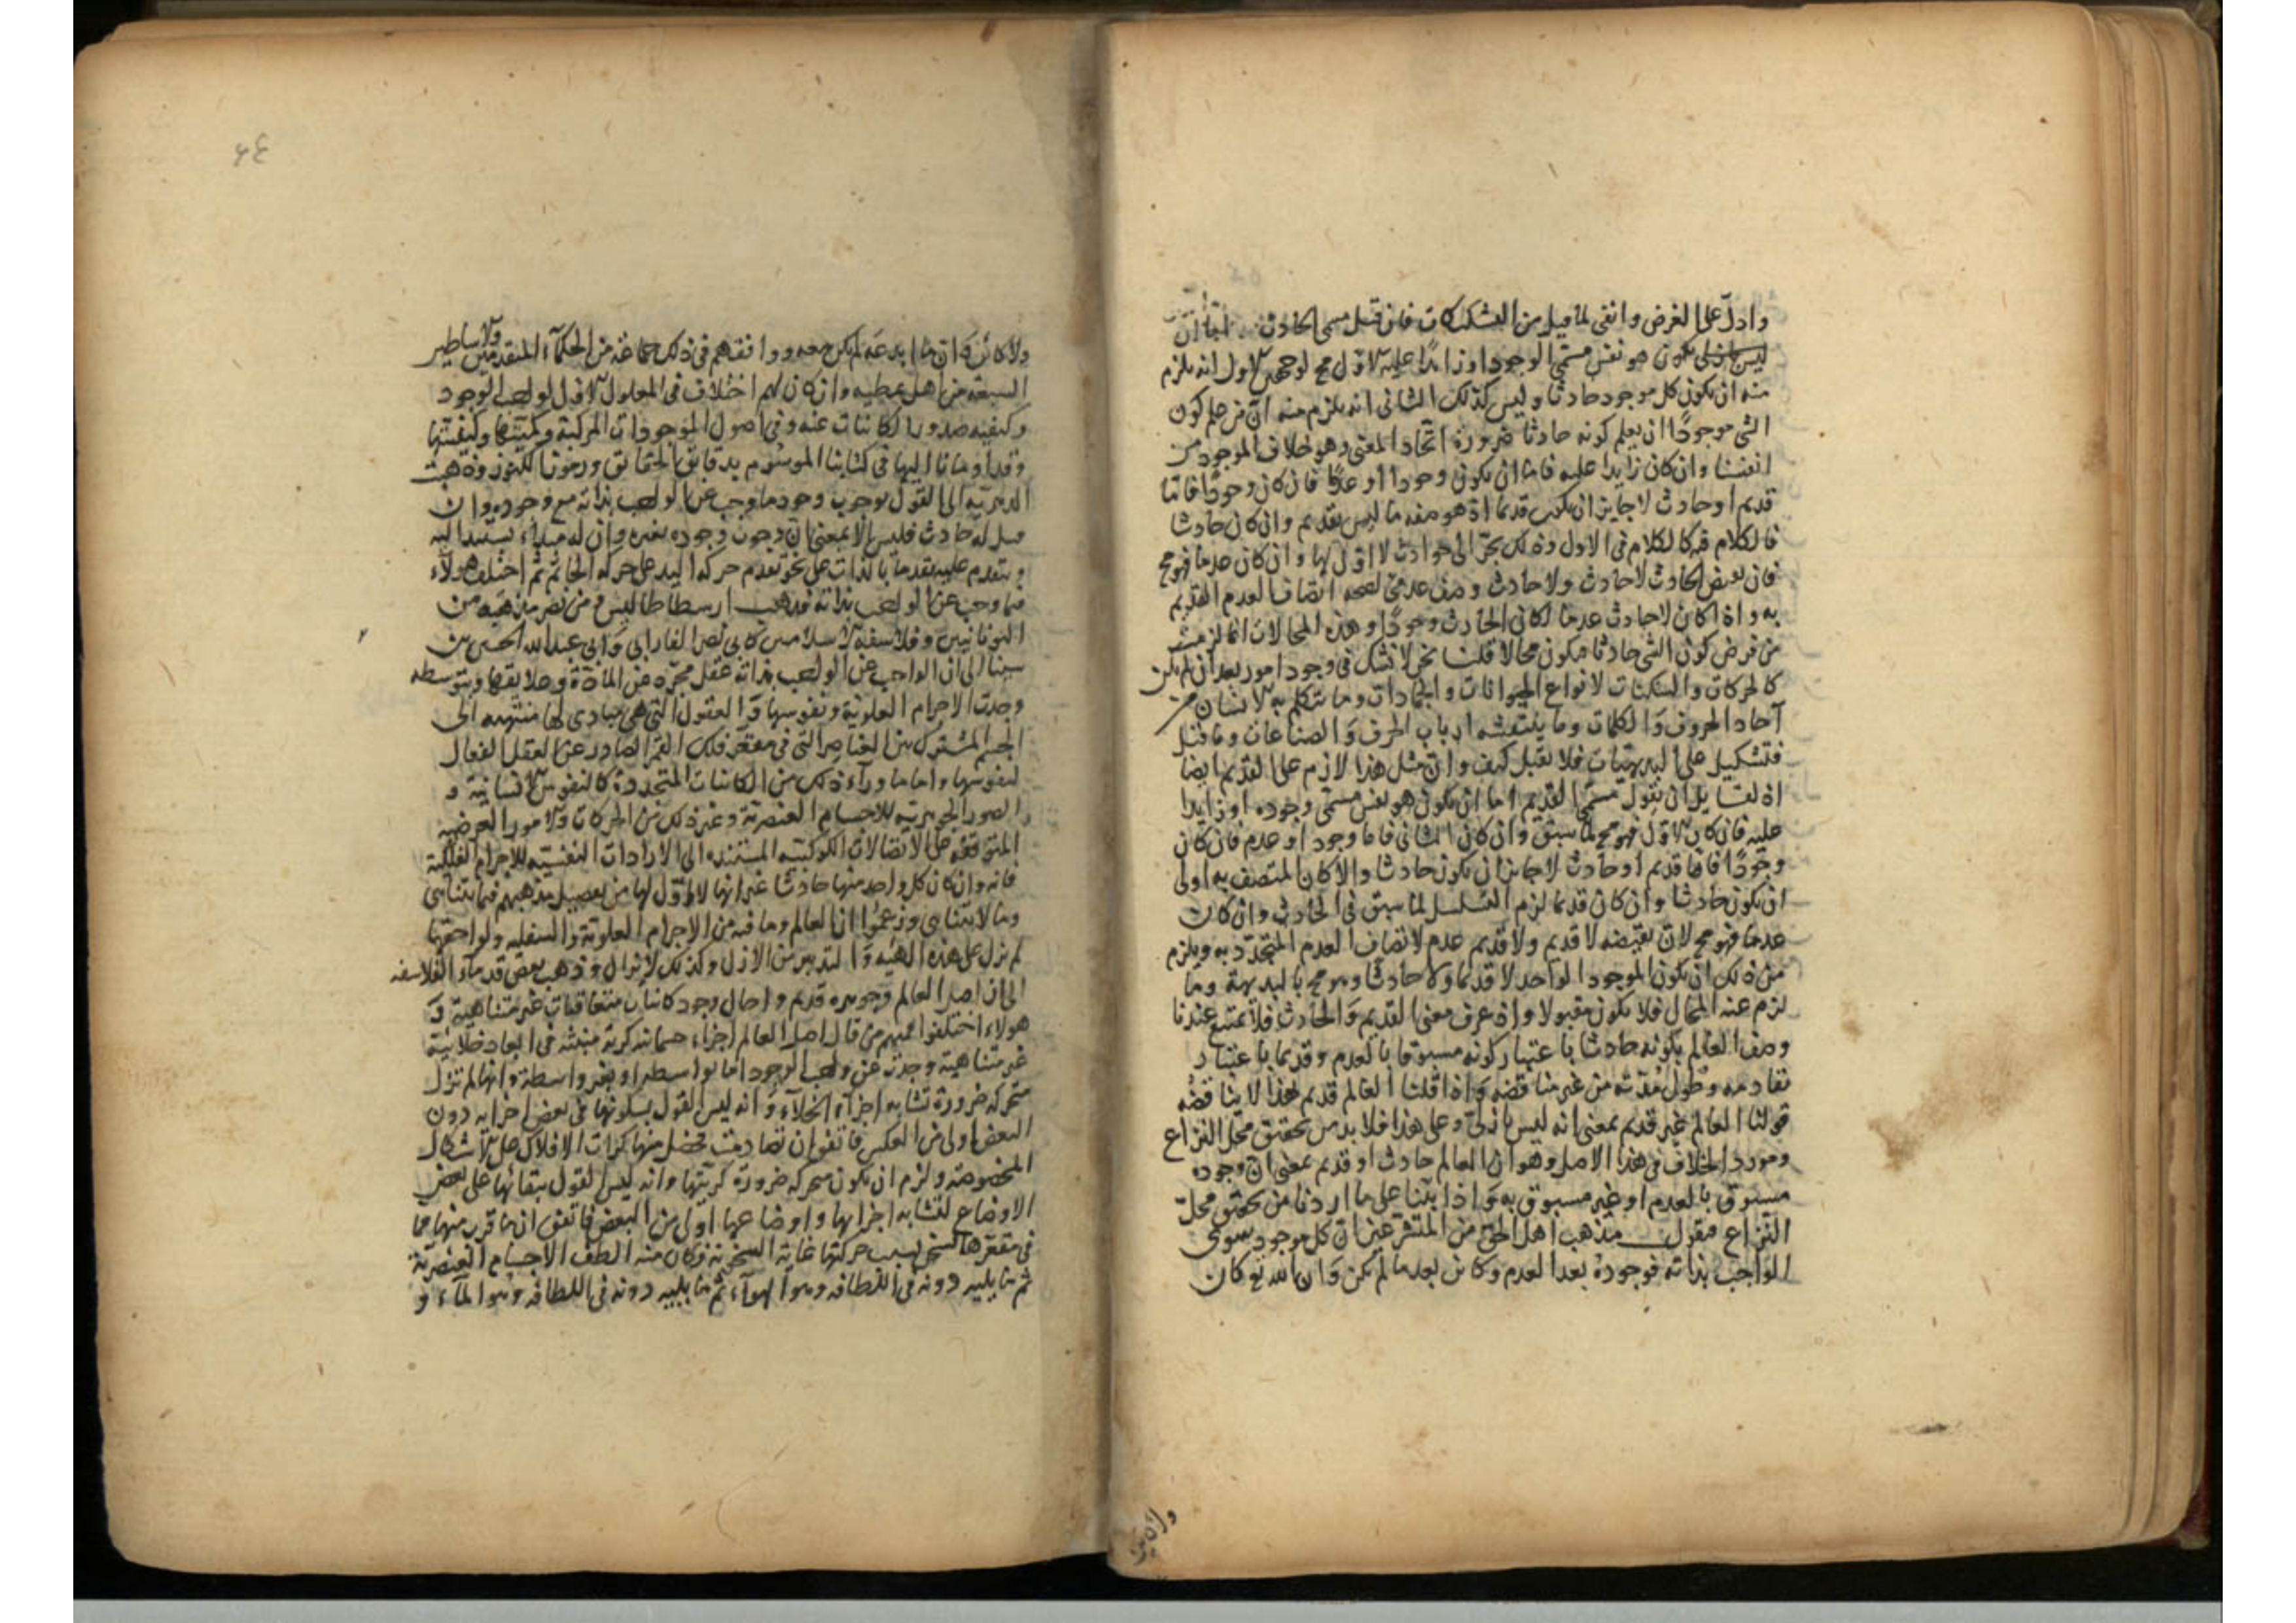 وادل على الغرض وانفى لما قيل من التشكيكات فان قيل مسمى الحادث اما ان
يكون هو نفس مسمى الوجود او زائدا عليه الاول مح لوجهين الاول انه يلزم
منه ان يكون كل موجود حادثا وليس كذلك الثانى انه يلزم منه ان من علم كون
الشى موجودا ان يعلم كونه حادثا ضرورة اتحاد المعنى وهو خلاف الموجود من
انفسنا وان كان زايدا عليه فاما ان يكون وجودا او عدما فان كان وجودا فاما
قديم او حادث لا جايز ان يكون قديما اذ هو صفة ما ليس بقديم وان كان حادثا
فالكلام فيه كالكلام فى الاول وذلك يجر الى حوادث لا اول لها وان كان عدما فهو مح
فان نقيض الحادث لا حادث ولا حادث وصف عدمى لصحه اتصاف العدم القديم
به واذا كان لا حادث عدما لكان الحادث وجودا وهذه المحالات انما لزمت
من فرض كون الشى حادثا فيكون محالا قلنا نحن لا نشك فى وجود امور بعد ان لم تكن
كالحركات والسكنات لانواع الحيوانات والجمادات وما يتكلم به الانسان من
آحاد الحروف والكلمات وما ينتقشه ارباب الحرف والصناعات وما قيل
فتشكيك على البديهيات فلا يقبل كيف وان مثل هذا لازم على القديم ايضا
اذ لقايل ان يقول مسمى القديم اما ان يكون هو نفس مسمى وجوده او زايدا
عليه فان كان الاول فهو مح لما سبق وان كان الثانى فاما وجود او عدم فان كان
وجودا فاما قديم او حادث لا جايز ان يكون حادثا والا كان المتصف به اولى
ان يكون حادثا وان كان قديما لزم التسلسل لما سبق فى الحادث وان كان
عدما فهو مح لان نقيضه لا قديم ولا قديم عدم لاتصاف العدم المتجدد به ويلزم
من ذلك ان يكون الموجود الواحد لا قديما ولا حادثا وهو مح بالبديهة وما
لزم عنه المحال فلا يكون مقبولا واذ عرف معنى القديم والحادث فلا يمتنع عندنا
وصف العالم بكونه حادثا باعتبار كونه مسبوقا بالعدم وقديما باعتبار
تقادمه وطول مدته من غير مناقضه واذا قلنا العالم قديم فهذا لا يناقضه
قولنا العالم غير قديم بمعنى انه ليس بازلى وعلى هذا فلا بد من تحقيق محل النزاع
ومورد الخلاف فى هذا الاصل وهو ان العالم حادث او قديم بمعنى ان وجوده
مسبوق بالعدم او غير مسبوق به واذا بنينا على ما اردنا من تحقيق محل
النزاع فنقول مذهب اهل الحق من المتشرعين ان كل موجود سوى
الواجب بذاته فوجوده بعد العدم وكائن بعد ما لم يكن وان الله تع كان
ولا كائن
٦٤
ولا كائن وان ما ابدعه لم يكن معه ووافقهم فى ذلك جماعة من الحكماء المتقدمين والاساطير
السبعة من اهل ملطيه وان كان لهم اختلاف فى المعلول الاول لواجب الوجود
وكيفيه صدور الكاينات عنه وفى اصول الموجودات المركبة وكميتها وكيفيتها
وقد اومانا اليها فى كتابنا الموسوم بدقايق الحقايق ورموز الكنوز وذهبت
الدهرية الى القول بوجوب وجود ما وجب عن الواجب بذاته مع وجوده وان
قيل له حادث فليس الا بمعنى ان وجوب وجوده بغيره وان له مبداء يستند اليه
ويتقدم عليه تقدما بالذات على نحو تقدم حركه اليد على حركه الخاتم ثم اختلف هولاء
فيما وجب عن الواجب بذاته فذهب ارسطاطاليس ومن نصر مذهبه من
اليونانيين وفلاسفة الاسلاميين كابى نصر الفارابى وابى عبد الله الحسين بن
سينا الى ان الواجب عن الواجب بذاته عقل مجرد عن المادة وعلايقها وبتوسطه
وجدت الاجرام العلوية ونفوسها والعقول التى هى مبادى لها منتهيه الى
الجسم المشترك بين العناصر التى فى مقعر فلك القمر الصادر عن العقل الفعال
لنفوسها واما ما وراء ذلك من الكاينات المتجددة كالنفوس الانسانية و
الصور الجوهريه للاجسام العنصرية وغير ذلك من الحركات والامور العرضيه
المتوقفه على الاتصالات الكوكبيه المستنده الى الارادات النفسيه للاجرام الفلكية
فانه وان كان كل واحد منها حادثا غير انها لا اول لها من تفصيل مذهبهم فيما يتناهى
وما لا يتناهى وزعموا ان العالم وما فيه من الاجرام العلوية والسفليه ولواحقها
لم يزل على هذه الهيه والتدبير من الازل وكذلك لا يزال وذهب بعض قدماء الفلاسفه
الى ان اصل العالم وجوهره قديم واحال وجود كاينات متعاقبات غير متناهية و
هولاء اختلفوا فمنهم من قال اصل العالم اجزاء جسمانيه كريه منبثه فى ابعاد خلائية
غير متناهية وجدت عن واجب الوجود اما بواسطه او بغير واسطة وانها لم تزل
متحركه ضرورة تشابه اجزاء الخلاء وانه ليس القول بسكونها فى بعض اجزايه دون
البعض اولى من العكس فاتفق ان تصادمت فحصل منها كرات الافلاك على الاشكال
المخصوصة ولزم ان تكون متحركه ضرورة كريتها وانه ليس القول ببقائها على بعض
الاوضاع لتشابه اجزايها واوضاعها اولى من البعض فاتفق ان ما قرب منها مما
فى مقعرها تسخن بسبب حركتها غاية السخونة فكان منه الطف الاجسام العنصرية
ثم ما يليه دونه فى اللطافه وهو الهواء ثم ما يليه دونه فى اللطافه وهو الماء و